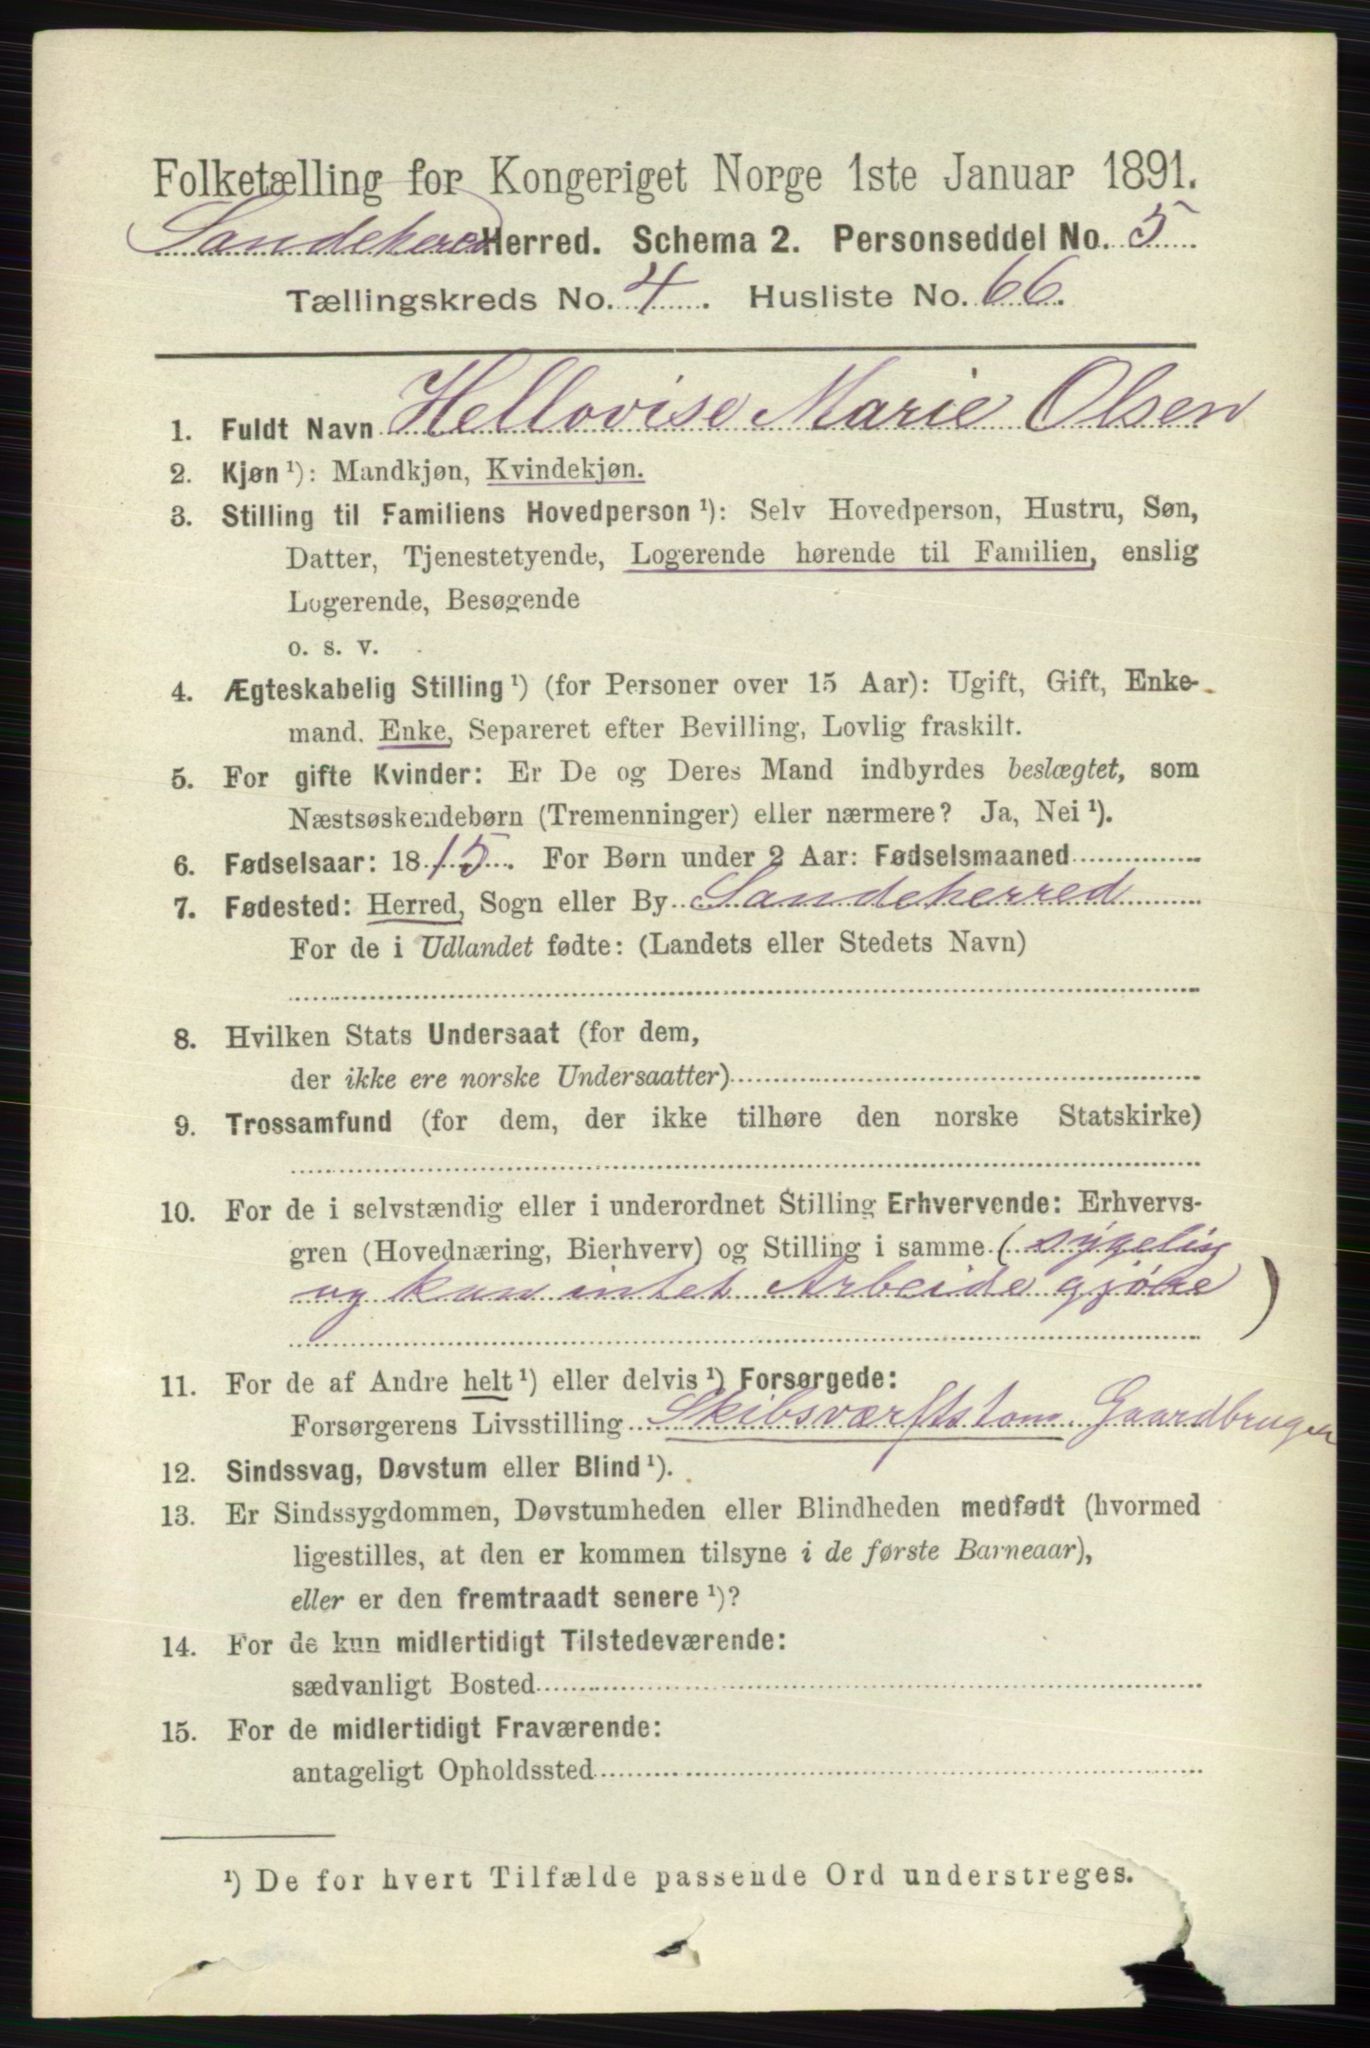 Folketælling for Kongeriget Norge 1ste Januar 1891.
Sandeherred Herred. Schema 2. Personseddel No. 5
Tællingskreds No. 4. Husliste No. 66.
1. Fuldt Navn Hellovise Marie Olsen
2. Kjøn ¹): Mandkjøn, Kvindekjøn.
3. Stilling til Familiens Hovedperson ¹): Selv Hovedperson, Hustru, Søn,
Datter, Tjenestetyende, Logerende hørende til Familien, enslig
Logerende, Besøgende
o. s. v.
4. Ægteskabelig Stilling ¹) (for Personer over 15 Aar): Ugift, Gift, Enke-
mand, Enke, Separeret efter Bevilling, Lovlig fraskilt.
5. For gifte Kvinder: Er De og Deres Mand indbyrdes beslægtet, som
Næstsøskendebørn (Tremenninger) eller nærmere? Ja, Nei ¹).
6. Fødselsaar: 1815. For Børn under 2 Aar: Fødselsmaaned
7. Fødested: Herred, Sogn eller By Sandeherred
For de i Udlandet fødte: (Landets eller Stedets Navn)
8. Hvilken Stats Undersaat (for dem,
der ikke ere norske Undersaatter)
9. Trossamfund (for dem, der ikke tilhøre den norske Statskirke)
10. For de i selvstændig eller i underordnet Stilling Erhvervende: Erhvervs-
gren (Hovednæring, Bierhverv) og Stilling i samme (sygelig
og kan intet Arbeide gjøre)
11. For de af Andre helt ¹) eller delvis ¹) Forsørgede:
Forsørgerens Livsstilling Skibsværftstøm. Gaardbruger
12. Sindssvag, Døvstum eller Blind ¹).
13. Er Sindssygdommen, Døvstumheden eller Blindheden medfødt (hvormed
ligestilles, at den er kommen tilsyne i de første Barneaar),
eller er den fremtraadt senere ¹)?
14. For de kun midlertidigt Tilstedeværende:
sædvanligt Bosted
15. For de midlertidigt Fraværende:
antageligt Opholdssted
¹) De for hvert Tilfælde passende Ord understreges.